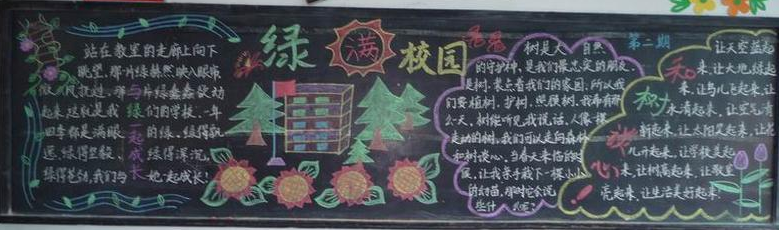 绿满校园
第二期
站在教室的走廊上向下
眺望,那片绿赫然映入眼帘
微风拂过,那片绿盎盎欲动
起来,这就是我们的学校,一年
四季都是满眼的绿,绿得耿
绿得坚毅,绿得深沉,
绿得苍劲,我们与她一起成长!
与绿一起成长
树是大自然
的守护神,是我们最忠实的朋友
是树,装点着我们的家园,所以我
们要植树,护树,照顾树,我希有
一天,树能听见我说话,人像棵
走动的树,我们可以走向森林
和树谈心,当春天来临的时
候,让我亲手栽下一棵小小
的幼苗,那时它会说
些什么呢?
让天空蓝起
来,让大地绿起
来,让鸟儿飞起来,让
水清起来,让空气清
新起来,让太阳亮起来,让花
儿开起来,让学校美起
来,让树高起来,让教室
亮起来,让生活美好起来!
和
树
谈
心